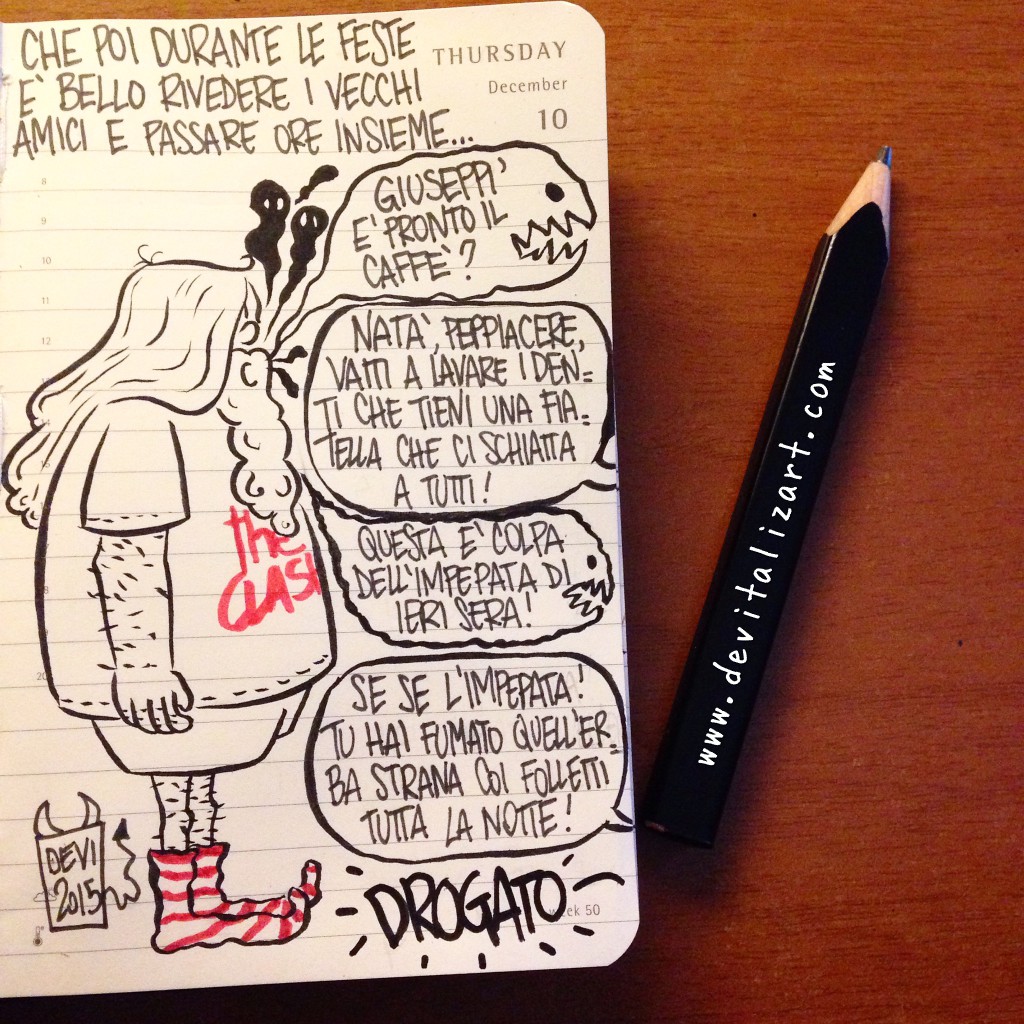 CHE POI DURANTE LE FESTE
E' BELLO RIVEDERE I VECCHI
AMICI E PASSARE ORE INSIEME...
THURSDAY
December
10
GIUSEPPI'
E' PRONTO IL
CAFFE'?
NATA', PEPPIACERE,
VATTI A LAVARE I DEN=
TI CHE TIENI UNA FIA=
TELLA CHE CI SCHIATTA
A TUTTI!
QUESTA E' COLPA
DELL'IMPEPATA DI
IERI SERA!
SE SE L'IMPEPATA!
TU HAI FUMATO QUELL'ER=
BA STRANA COI FOLLETTI
TUTTA LA NOTTE!
DROGATO
the
CLASH
DEVI
2015
8
9
10
11
12
20
week 50
www.devitalizart.com